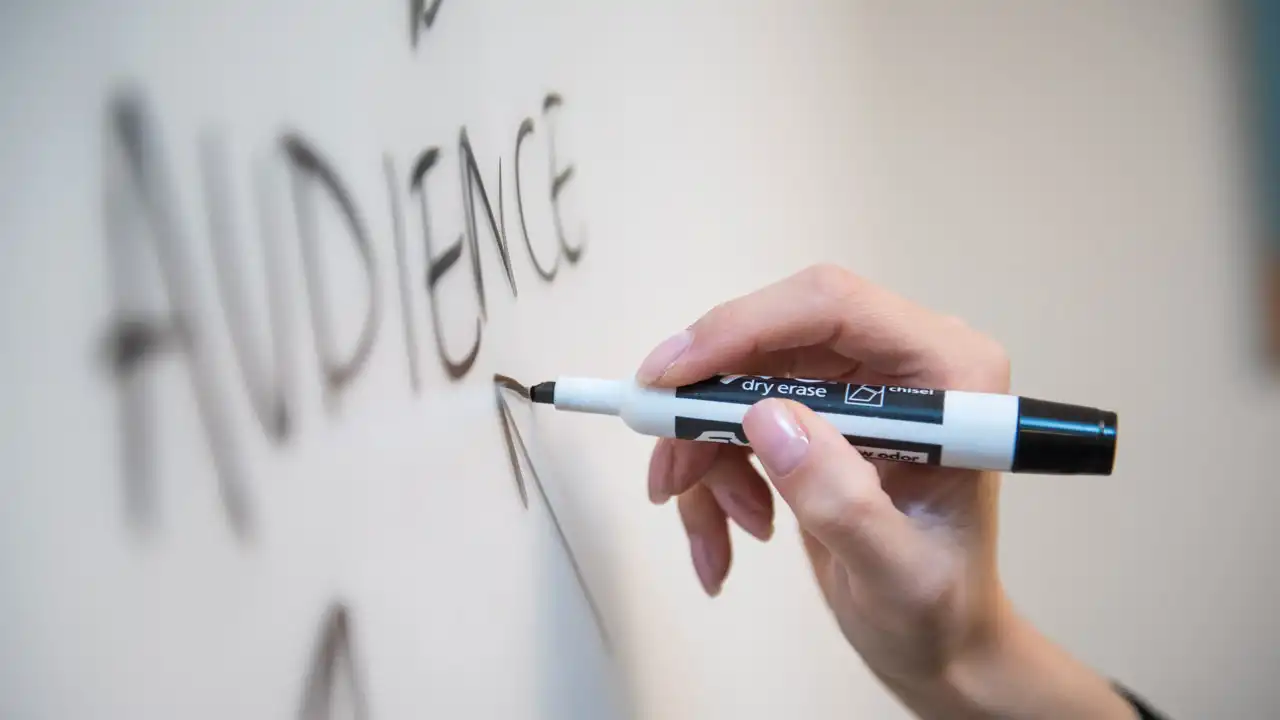 AUDIENCE
dry erase
chisel